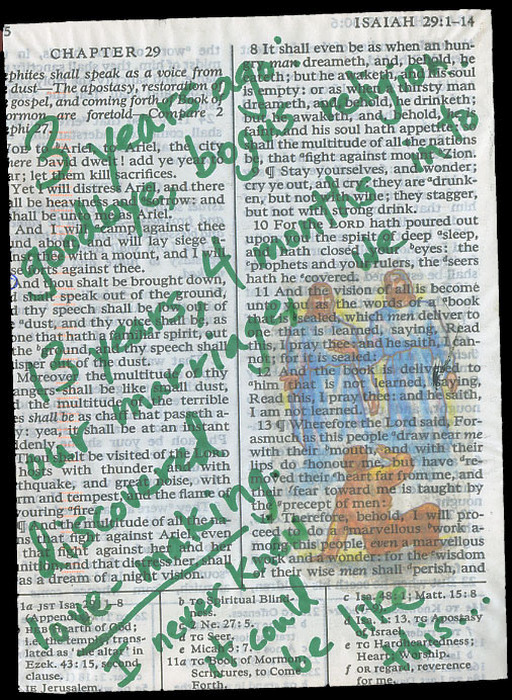 5
ISAIAH 29:1–14
CHAPTER 29
ephites shall speak as a voice from
dust—The apostasy, restoration of
gospel, and coming forth of Book of
ormon are foretold—Co 2
phi
to Ariel, to Ariel, the city
here David dwelt! add ye year to
ar; let them kill sacrifices.
Yet I will distress Ariel, and there
all be heaviness and sorrow: and
shall be unto me as Ariel.
And I will camp against thee
und about, and will lay siege
st thee with a mount, and I will
se forts against thee.
nd thou shalt be brought down,
shalt speak out of the ground,
d thy speech shall be low out of
e dust, and thy voice shall be, as
one that hath a familiar spirit, out
the ground, and thy speech shall
hisper out of the dust.
Moreover the multitude of thy
angers shall be like small dust,
d the multitude of the terrible
es shall be as chaff that passeth a-
y: yea, it shall be at an instant
denly.
Thou shalt be visited of the LORD
hosts with thunder, and with
thquake, and great noise, with
rm and tempest, and the flame of
vouring fire.
¶ And the multitude of all the na-
ns that fight against Ariel, even
that fight against her and her
unition, and that distress her, shall
as a dream of a night vision.
8 It shall even be as when an hun-
man dreameth, and, behold, he
eateth; but he awaketh, and his soul
is empty: or as when a thirsty man
dreameth, and, behold, he drinketh;
but he awaketh, and, behold, he is
faint, and his soul hath appetite:
shall the multitude of all the nations
be, that fight against mount Zion.
9 ¶ Stay yourselves, and wonder;
cry ye out, and cry: they are drunk-
en, but not with wine; they stagger,
but not with strong drink.
10 For the LORD hath poured out
upon you the spirit of deep sleep,
and hath closed your eyes: the
prophets and your rulers, the seers
hath he covered.
11 And the vision of all is become
unto you as the words of a book
that is sealed, which men deliver to
one that is learned, saying, Read
this, I pray thee: and he saith, I can-
not; for it is sealed:
12 And the book is delivered to
him that is not learned, saying,
Read this, I pray thee: and he saith,
I am not learned.
13 ¶ Wherefore the Lord said, For-
asmuch as this people draw near me
with their mouth, and with their
lips do honour me, but have re-
moved their heart far from me, and
their fear toward me is taught by
the precept of men:
14 Therefore, behold, I will pro-
ceed to do a marvellous work a-
mong this people, even a marvellous
work and a wonder: for the wisdom
of their wise men shall perish, and
1a JST Isa. 29:1–8
(Appendix).
b HEB Hearth of God;
i.e. the temple; trans-
lated as 'the altar' in
Ezek. 43:15, second
clause.
IE Jerusalem.
b TG Spiritual Blind-
ness.
c 2 Ne. 27:5.
d TG Seer.
e Micah 3:7.
11a TG Book of Mormon;
Scriptures, to Come
Forth.
c Isa. 48:1; Matt. 15:8
13. TG Apostasy
of Israel.
e TG Hardheartedness;
Heart; Worship.
f OR regard, reverence
for me.
3 years ago:
goodbye, bogus religion.
13 years, 4 months into
our marriage, we
discovered
love-making.
I never knew
it could
be like
this...